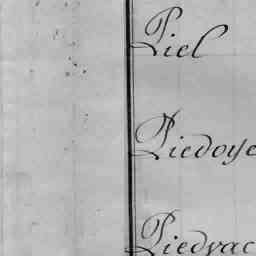 Piel
Piedoye
Piedvac